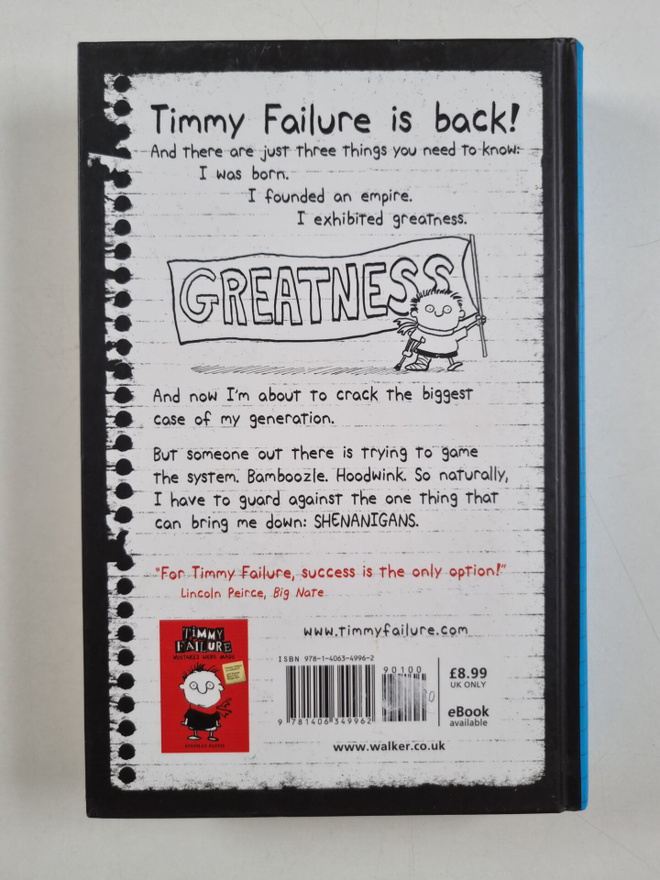 Timmy Failure is back!
And there are just three things you need to know:
I was born.
I founded an empire.
I exhibited greatness.
GREATNESS
And now I'm about to crack the biggest
case of my generation.
But someone out there is trying to game
the system. Bamboozle. Hoodwink. So naturally,
I have to guard against the one thing that
can bring me down: SHENANIGANS.
"For Timmy Failure, success is the only option!"
Lincoln Peirce, Big Nate
TIMMY
FAILURE
MISTAKES WERE MADE
STEPHAN PASTIS
www.timmyfailure.com
ISBN 978-1-4063-4996-2
90100
9 781406 349962
£8.99
UK ONLY
eBook
available
www.walker.co.uk